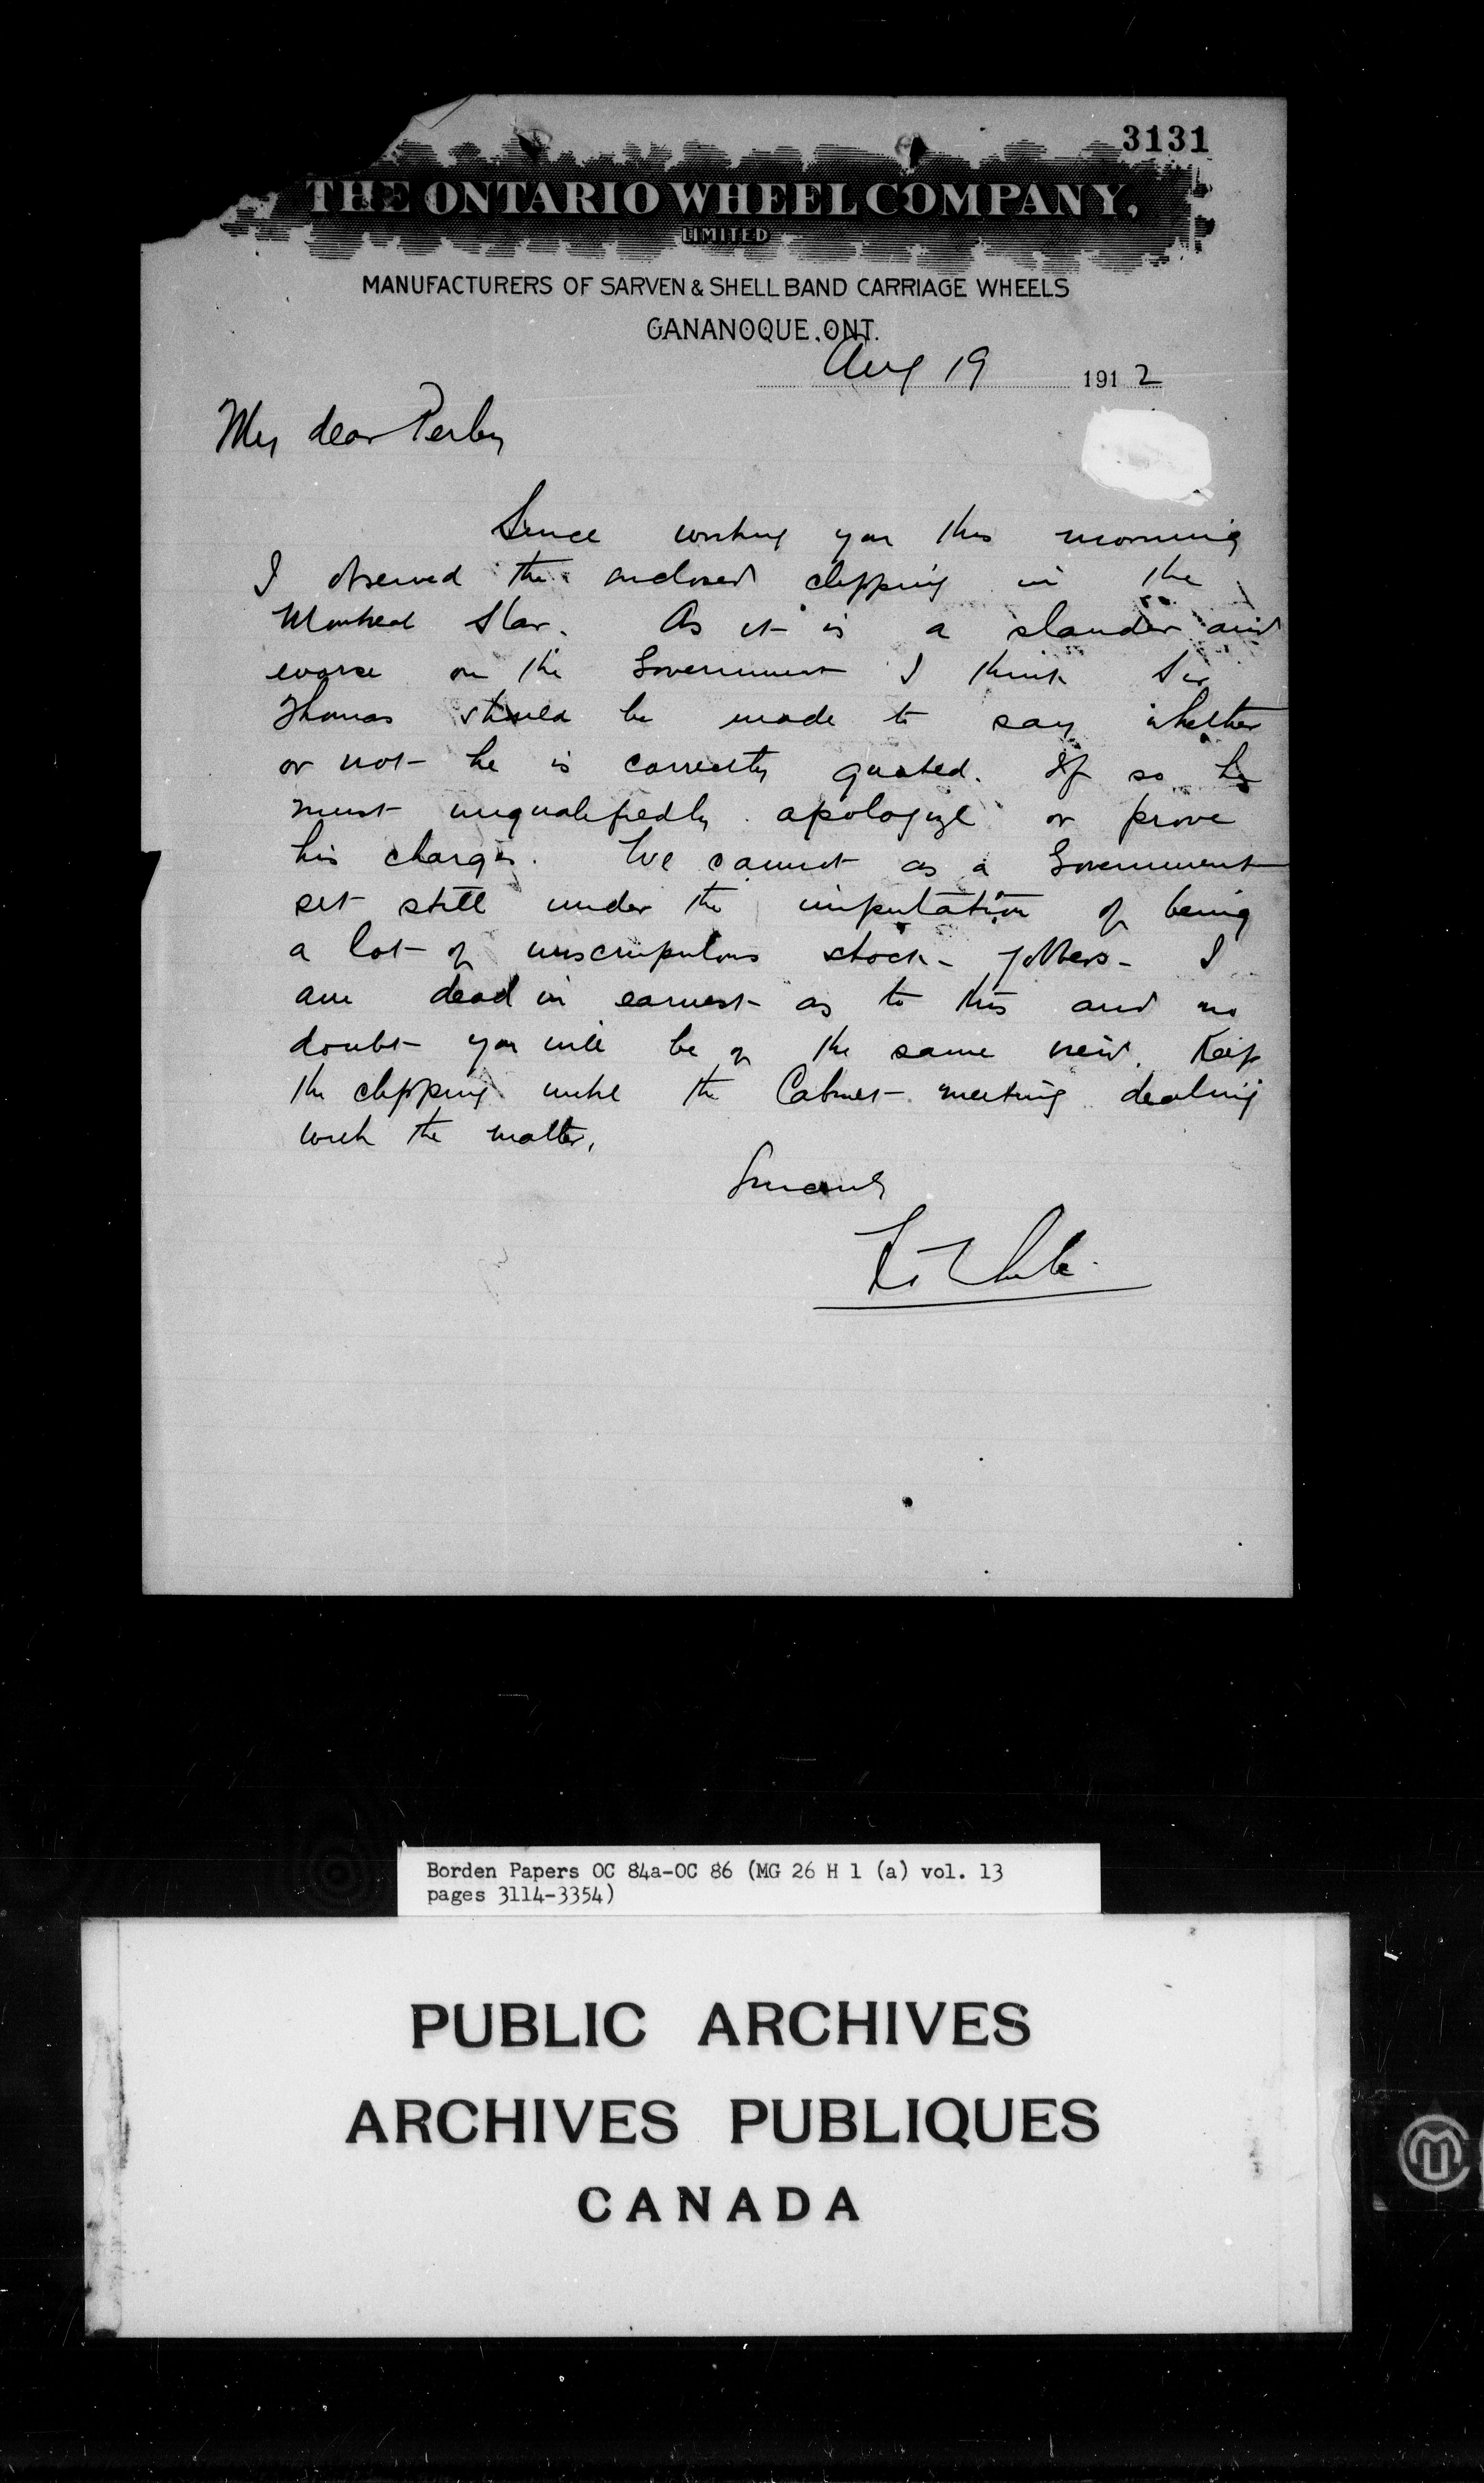 3131
THE ONTARIO WHEEL COMPANY,
LIMITED
MANUFACTURERS OF SARVEN & SHELL BAND CARRIAGE WHEELS
GANANOQUE, ONT.
Aug 19 1912
My dear Perley
Since writing you this morning
I observed the enclosed clipping in the
Montreal Star. As it is a slander and
worse on the Government I think Sir
Thomas should be made to say whether
or not he is correctly quoted. If so he
must unqualifiedly apologize or prove
his charges. We cannot as a Government
sit still under the imputation of being
a lot of unscrupulous stock-jobbers - I
am dead in earnest as to this and no
doubt you will be of the same view. Keep
the clipping until the Cabinet meeting dealing
with the matter.
Sincerely
White.
Borden Papers OC 84a-OC 86 (MG 26 H 1 (a) vol. 13
pages 3114-3354)
PUBLIC ARCHIVES
ARCHIVES PUBLIQUES
CANADA